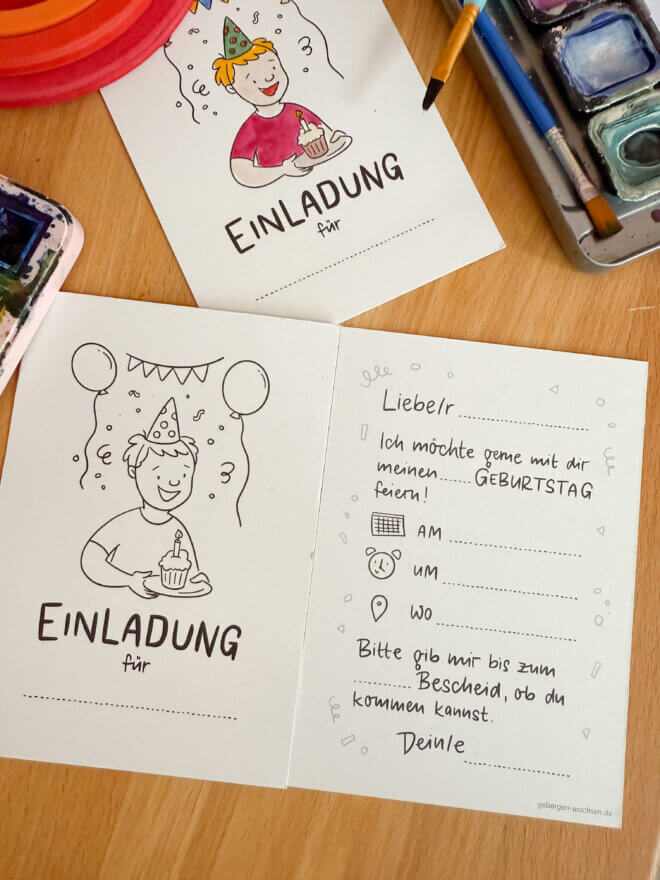 EINLADUNG
für
EINLADUNG
für
Liebe/r
Ich möchte gerne mit dir
meinen ...... GEBURTSTAG
feiern!
AM
UM
WO
Bitte gib mir bis zum
............ Bescheid, ob du
kommen kannst.
Dein/e
geborgen-wachsen.de